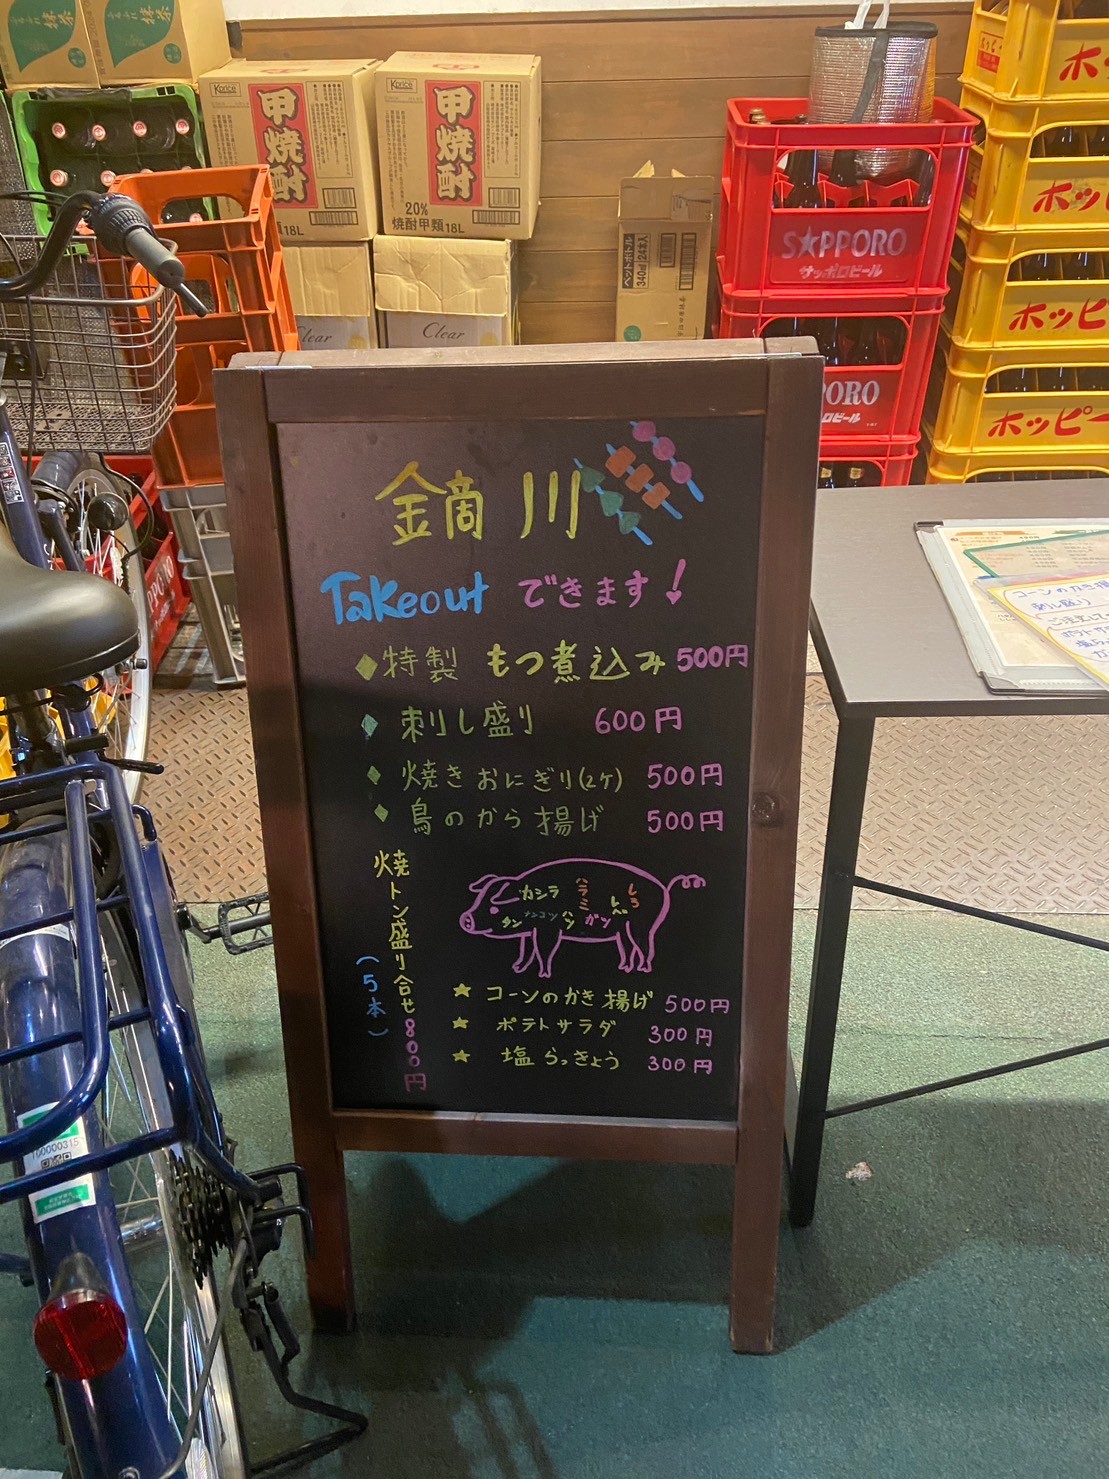 Kprice
甲焼酎
Kprice
甲焼酎
20%
焼酎甲類18L
Clear
Clear
ペットボトル
340㎖/24本入
SAPPORO
サッポロビール
PORO
ロビール
ホ
ホッピ
ホッピ
ホッピー
鏑川
Takeout できます!
特製 もつ煮込み 500円
刺し盛り 600円
焼きおにぎり(2ケ) 500円
鳥のから揚げ 500円
焼トン盛り合せ 800円
(5本)
カシラ
ハラミ
しろ
タン
ナンコツ
ハツ
ガツ
レバ
コーンのかき揚げ 500円
ポテトサラダ 300円
塩らっきょう 300円
コーンのかき揚
刺し盛り